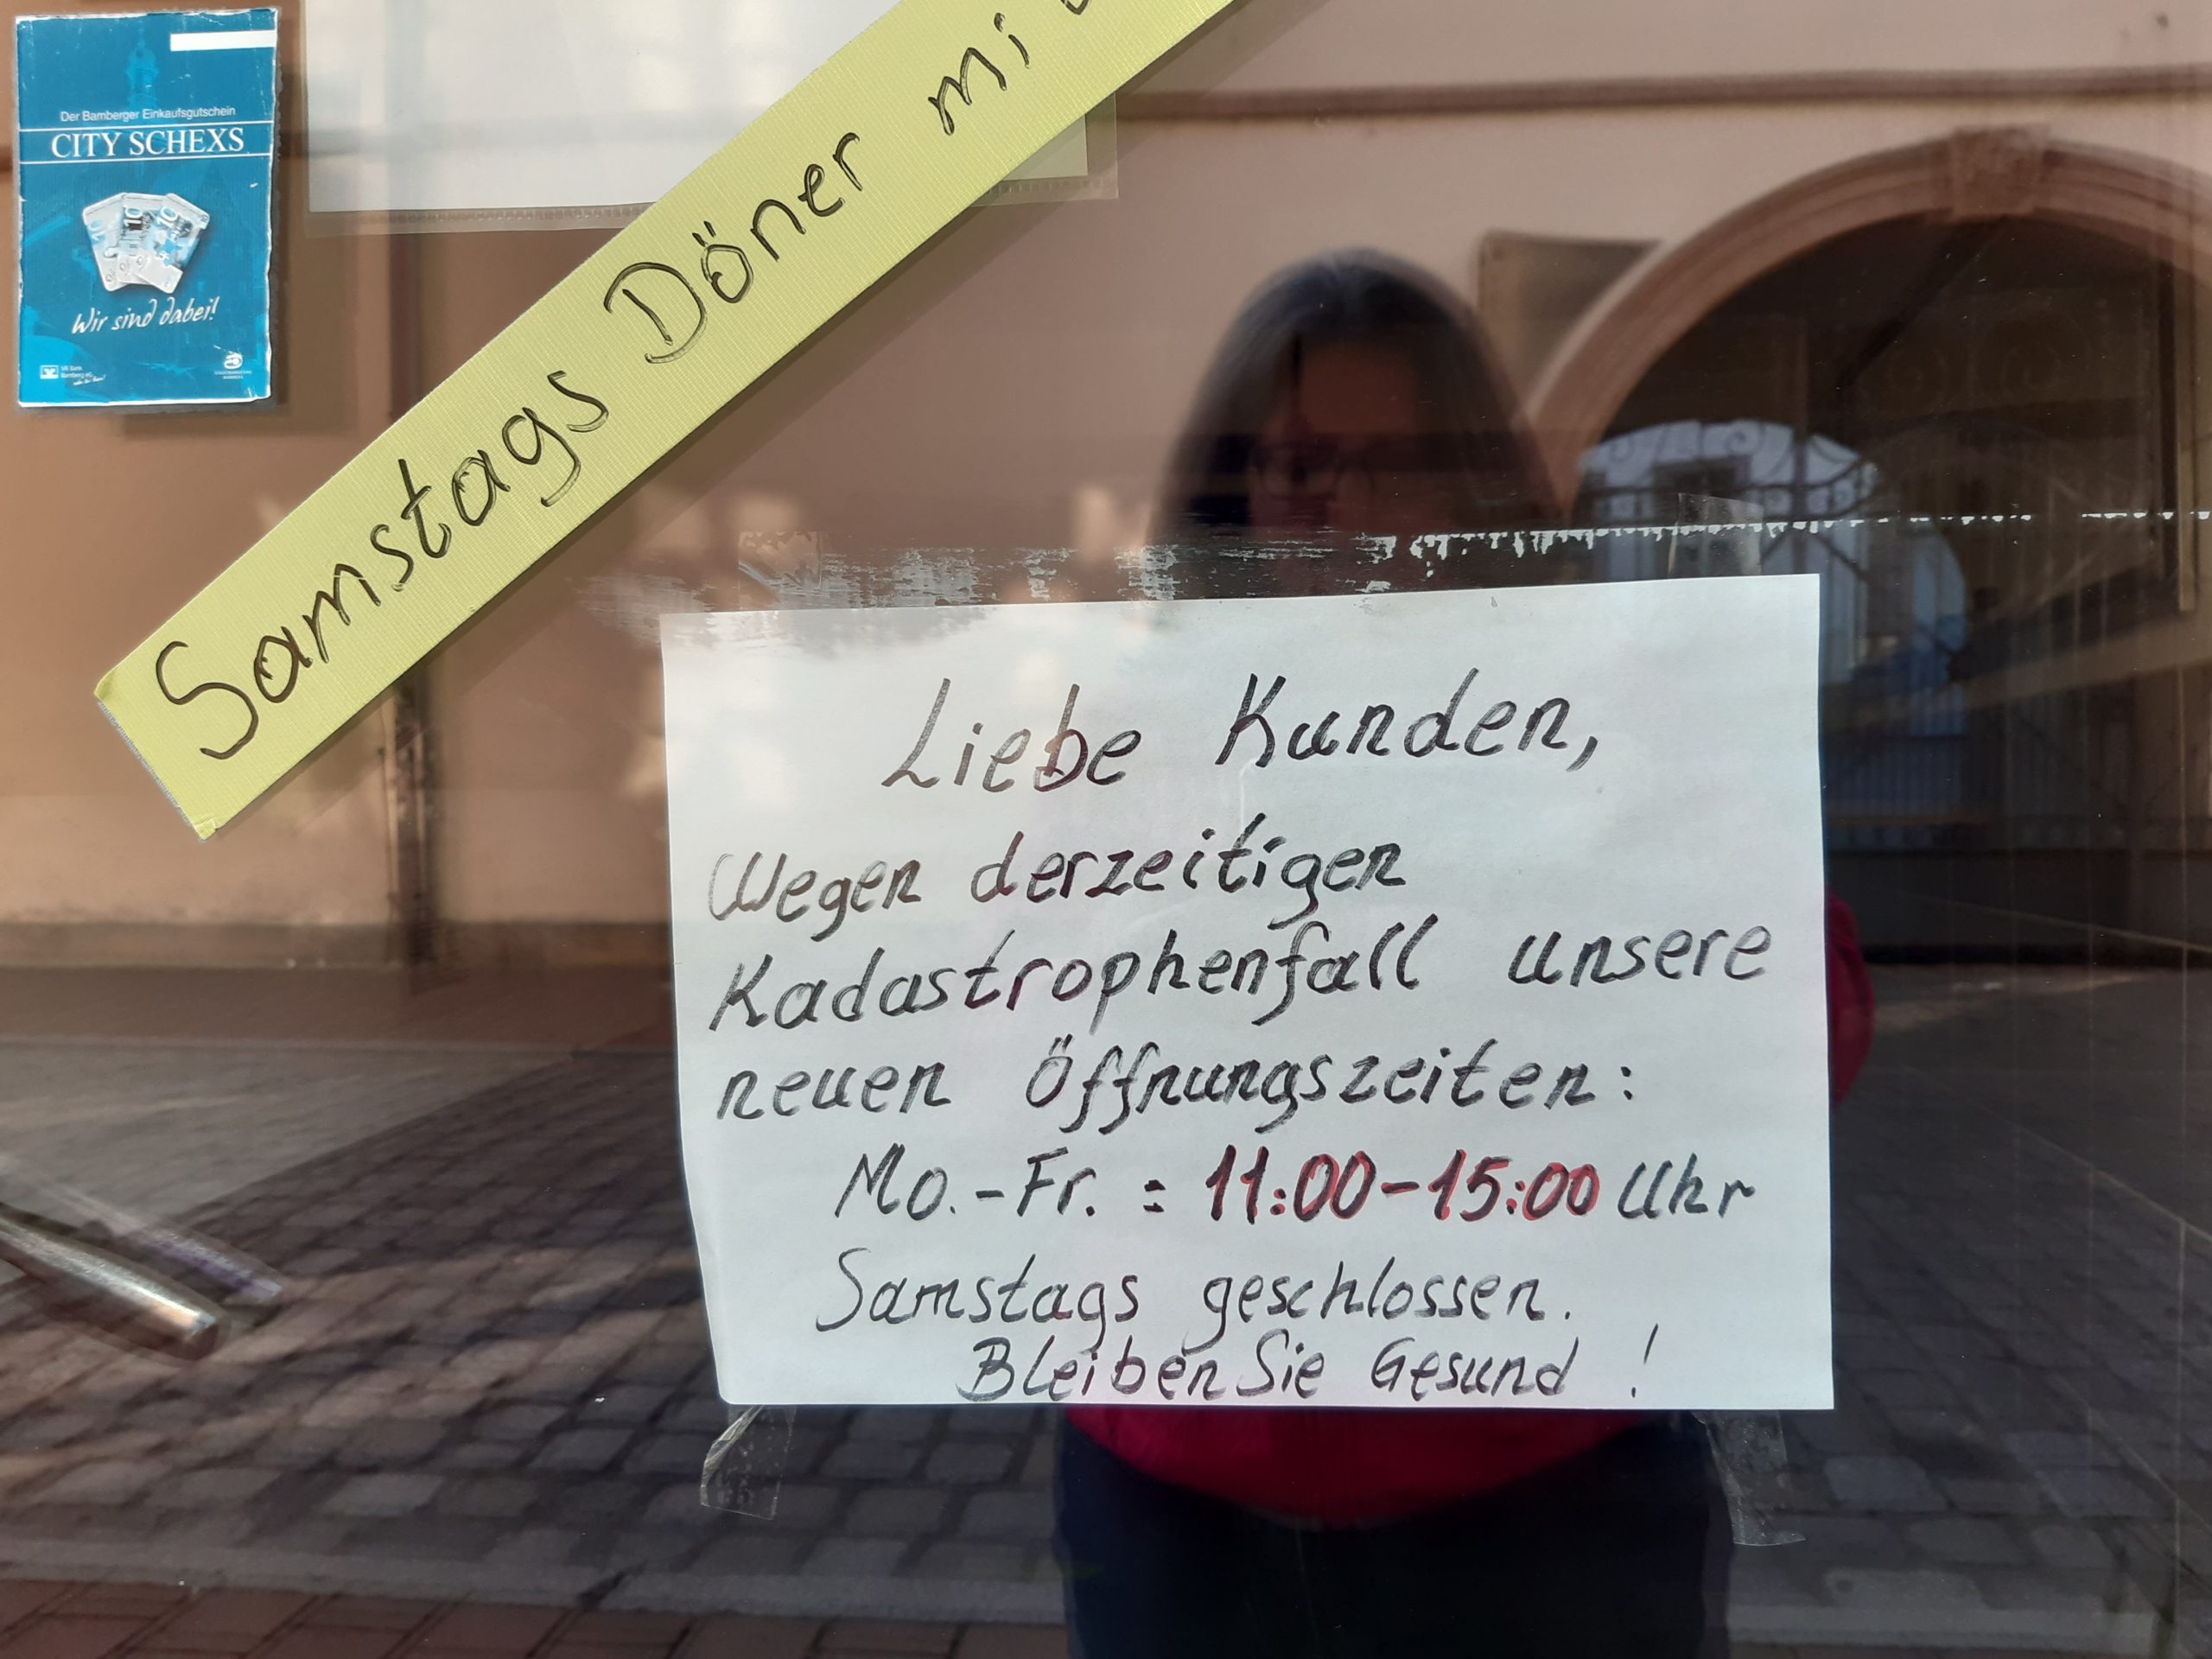 Der Bamberger Einkaufsgutschein
CITY SCHEXS
Wir sind dabei!
Samstags Döner
Liebe Kunden,
Wegen derzeitigen
Kadastrophenfall unsere
neuen Öffnungszeiten:
Mo.-Fr. = 11:00-15:00 Uhr
Samstags geschlossen.
Bleiben Sie Gesund !